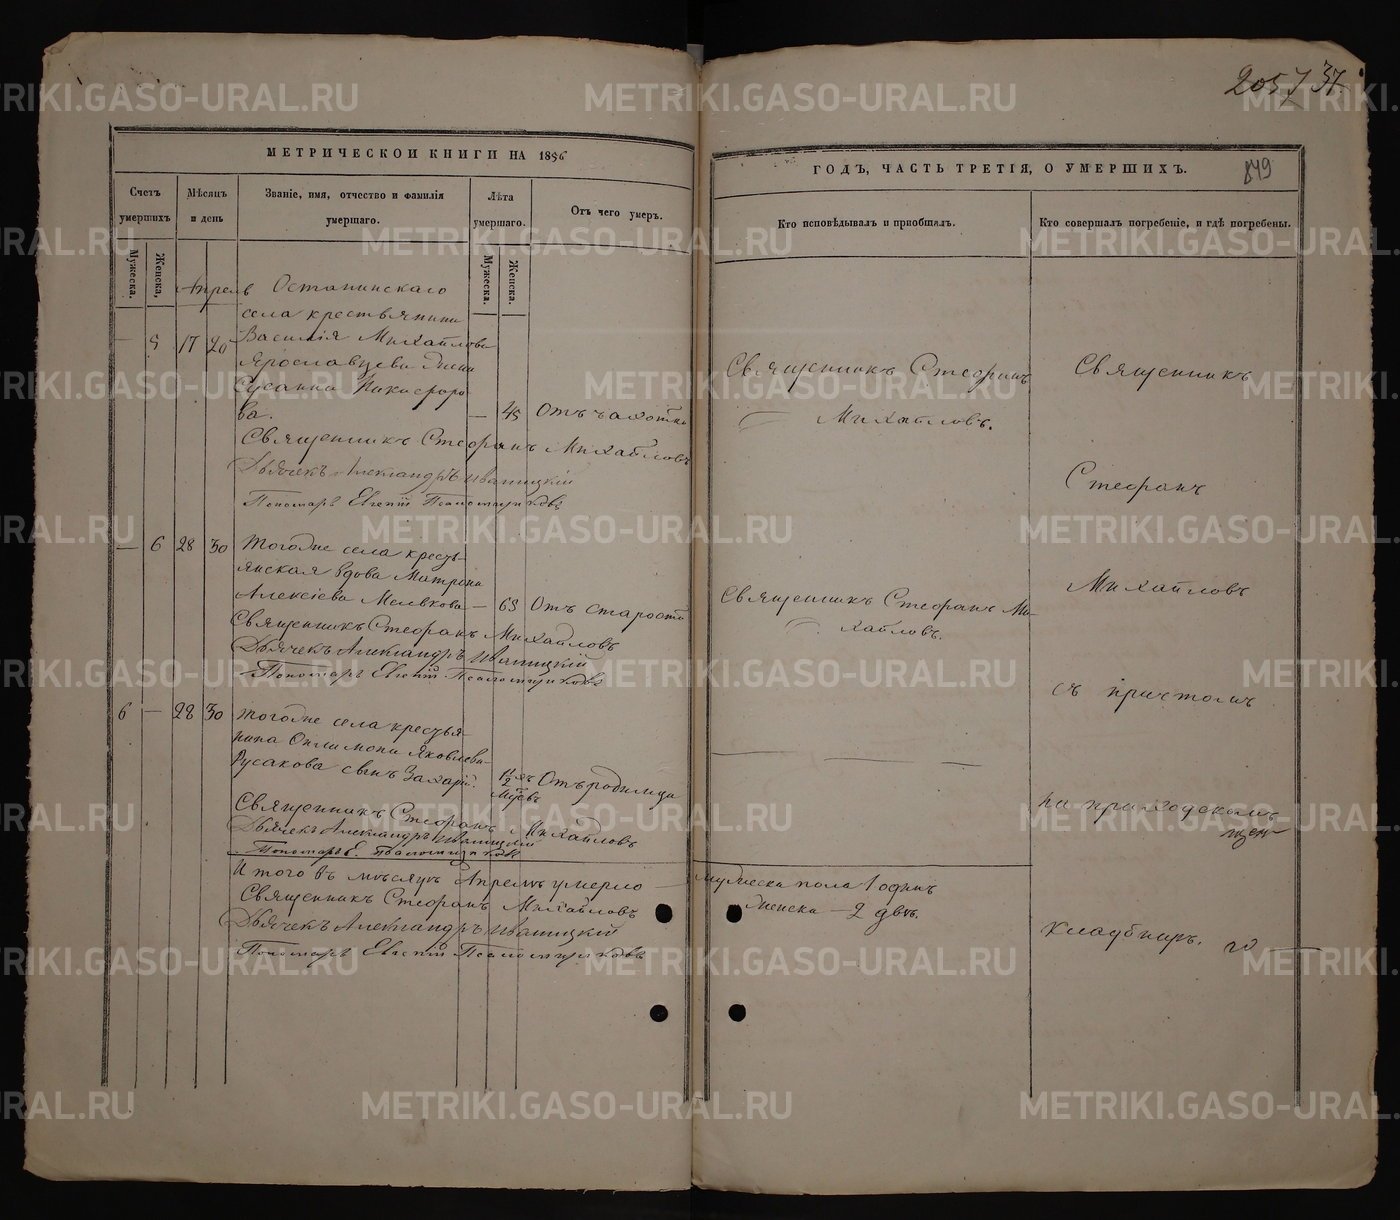 2057 37.
849
МЕТРИЧЕСКОЙ КНИГИ НА 1856
ГОДЪ, ЧАСТЬ ТРЕТІЯ, О УМЕРШИХЪ.
Счетъ умершихъ
Мѣсяцъ и день
Званіе, имя, отчество и фамилія умершаго.
Лѣта умершаго.
Отъ чего умеръ.
Кто исповѣдывалъ и пріобщалъ.
Кто совершалъ погребеніе, и гдѣ погребены.
Мужеска.
Женска.
Мужеска.
Женска.
Апрель
Останинскаго
села крестьянина
— 5 17 20 Василія Михайлова
Ярославцева жена
Сусанна Никифоро
ва. — 45 Отъ чахотки
Священникъ Стефанъ
Михайловъ.
Священникъ Стефанъ Михайловъ
Дьячекъ Александръ Иваницкій
Пономарь Евгеній Псаломщиковъ
— 6 28 30 Тогоже села кресть-
янская вдова Матрона
Алексіева — 63 Отъ старости
Священникъ Стефанъ Ми-
хайловъ.
Священникъ Стефанъ Михайловъ
Дьячекъ Александръ Иваницкій
Пономарь Евгеній Псаломщиковъ
6 — 28 30 Тогоже села крестья-
нина Яковлева
Русакова сынъ Захарій. Отъ родимца
Священникъ Стефанъ Михайловъ
Дьячекъ Александръ Иваницкій
Пономарь Е. Псаломщиковъ
Итого въ мѣсяцѣ Апрелѣ умерло — мужеска пола 1 одинъ
женска — 2 двѣ.
Священникъ Стефанъ Михайловъ
Дьячекъ Александръ Иваницкій
Пономарь Евгеній Псаломщиковъ
Священникъ
Стефанъ
Михайловъ
съ причтомъ
на приходскомъ
кладбищѣ.
METRIKI.GASO-URAL.RU